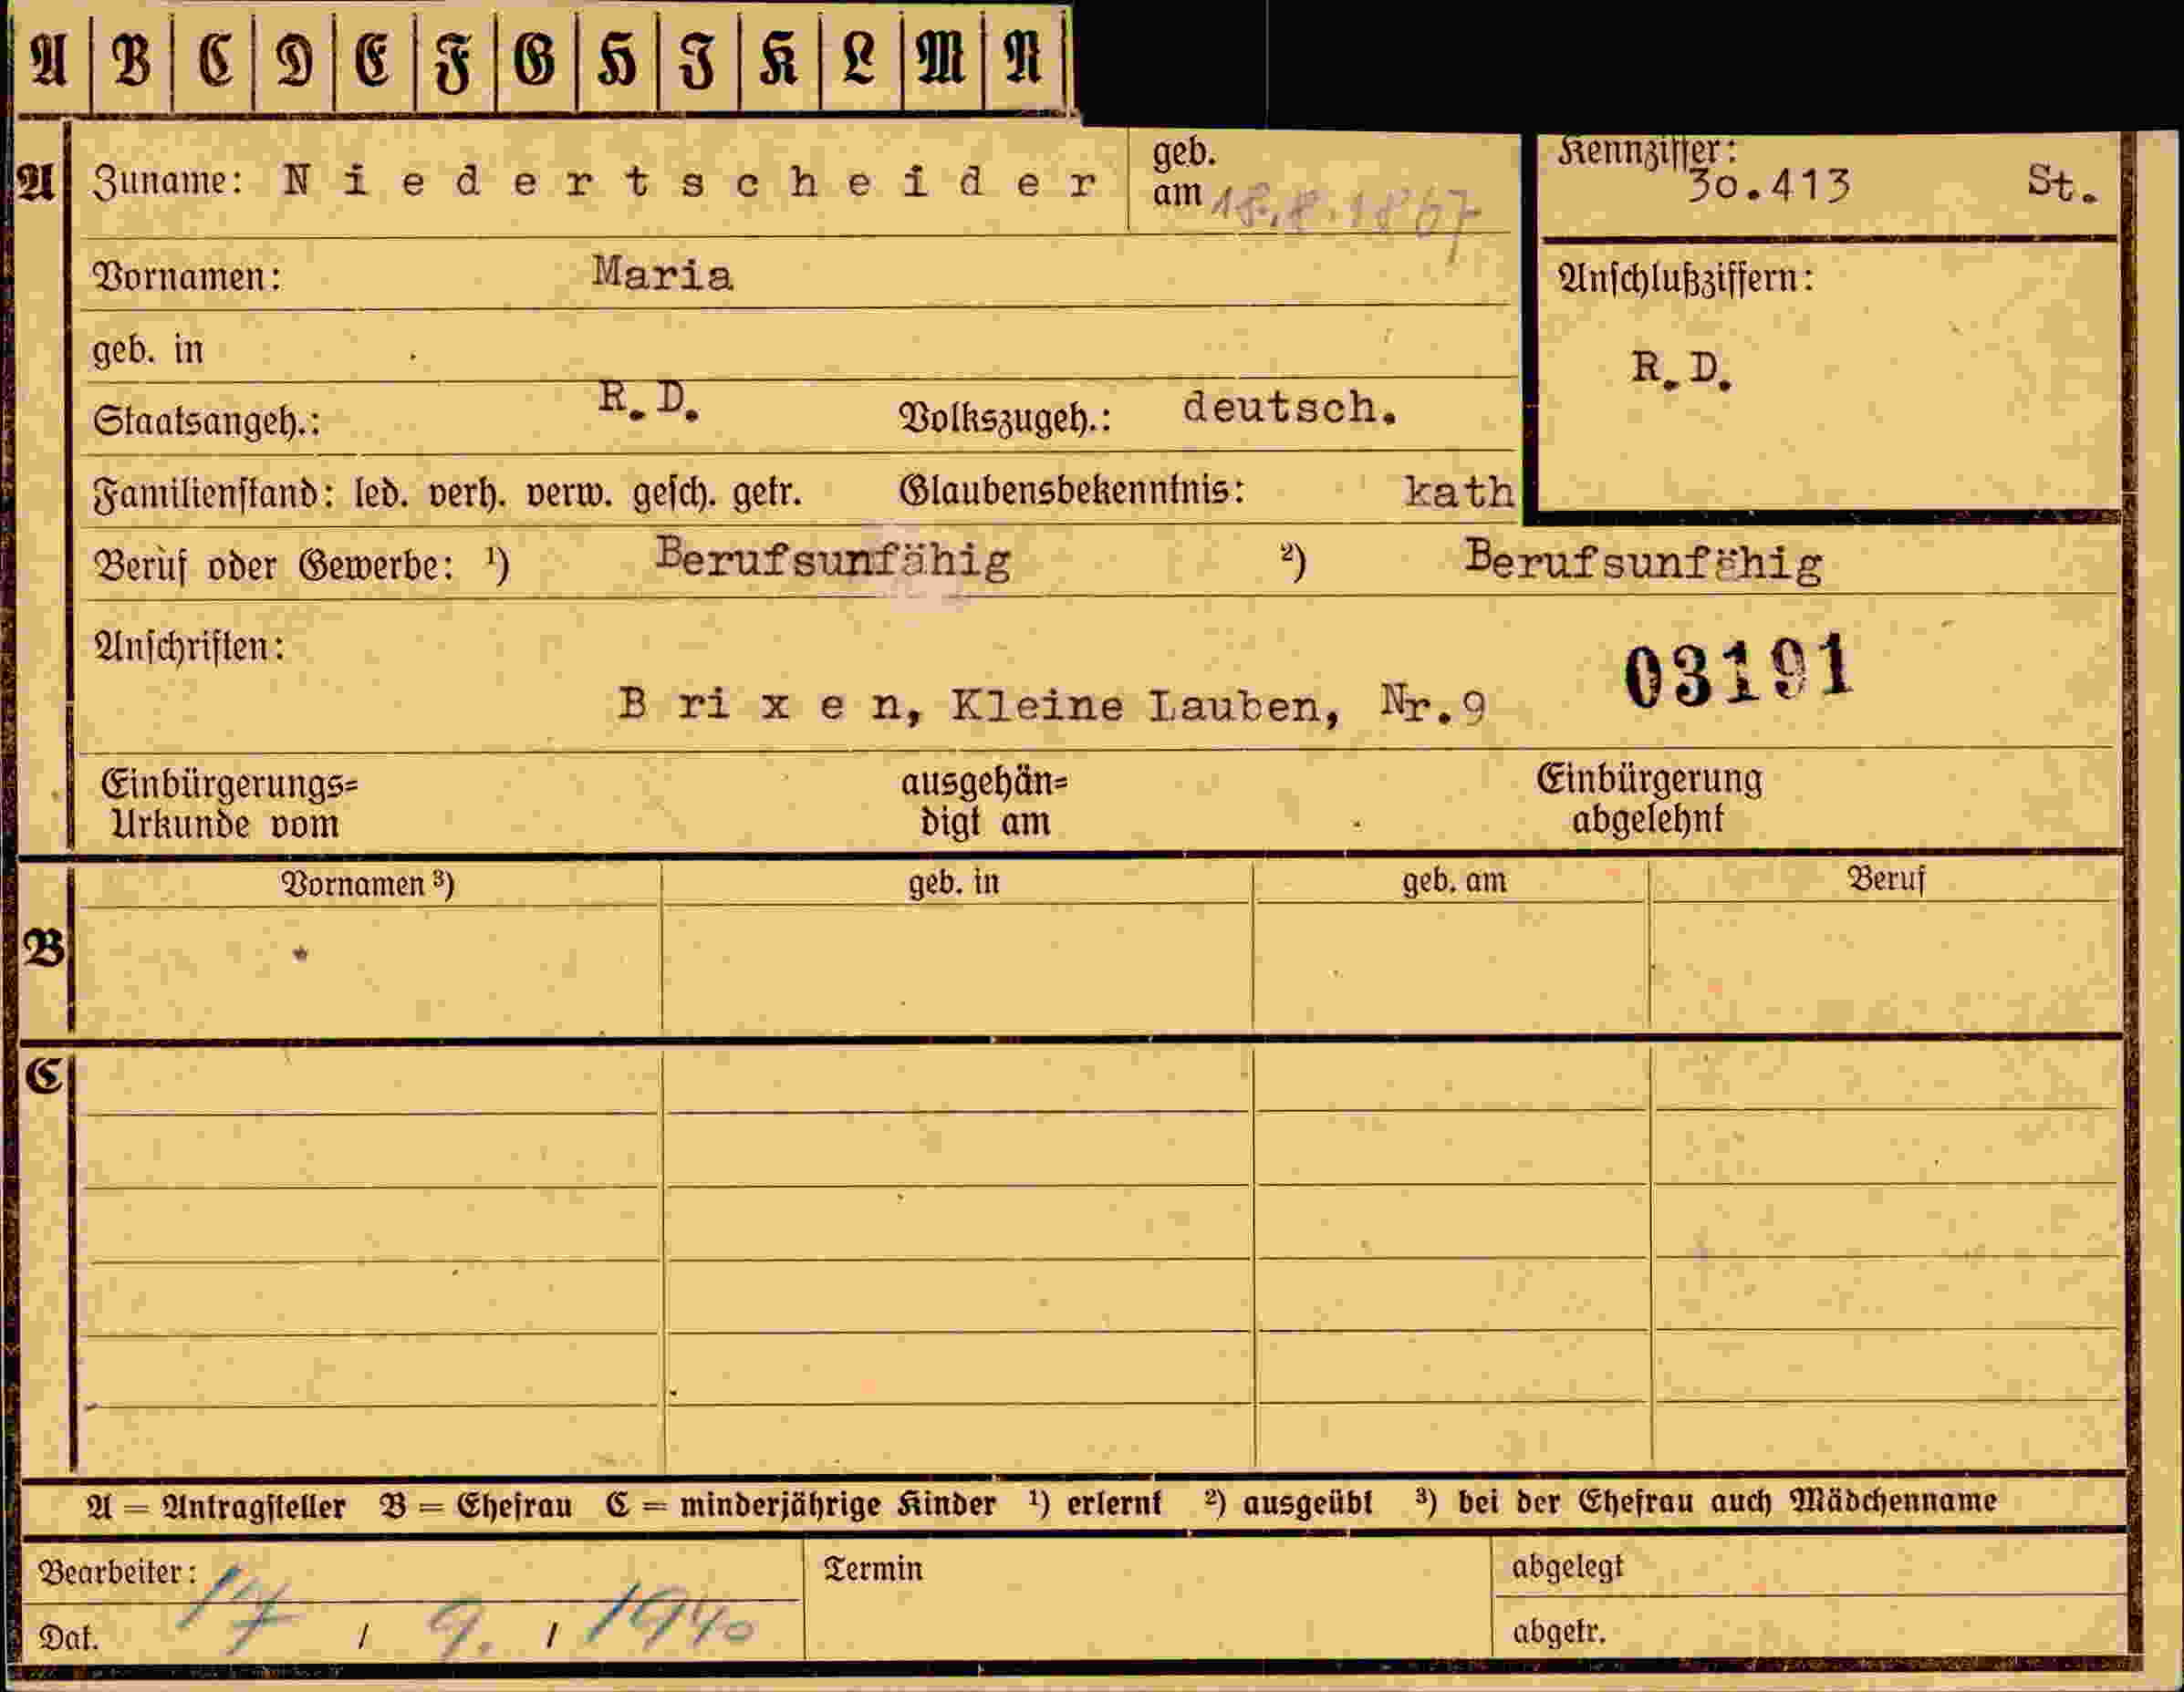 A B C D E F G H I K L M N
A Zuname: Niedertscheider geb. am 18.8.1867 Kennziffer: 30.413 St.
Vornamen: Maria Anschlußziffern:
geb. in R.D.
Staatsangeh.: R.D. Volkszugeh.: deutsch.
Familienstand: led. verh. verw. gesch. getr. Glaubensbekenntnis: kath
Beruf oder Gewerbe: ¹) Berufsunfähig ²) Berufsunfähig
Anschriften: 03191
Brixen, Kleine Lauben, Nr.9
Einbürgerungs= ausgehän= Einbürgerung
Urkunde vom digt am abgelehnt
Vornamen ³) geb. in geb. am Beruf
B
C
A = Antragsteller B = Ehefrau C = minderjährige Kinder ¹) erlernt ²) ausgeübt ³) bei der Ehefrau auch Mädchenname
Bearbeiter: Termin abgelegt
Dat. 17 / 9. / 1940 abgetr.